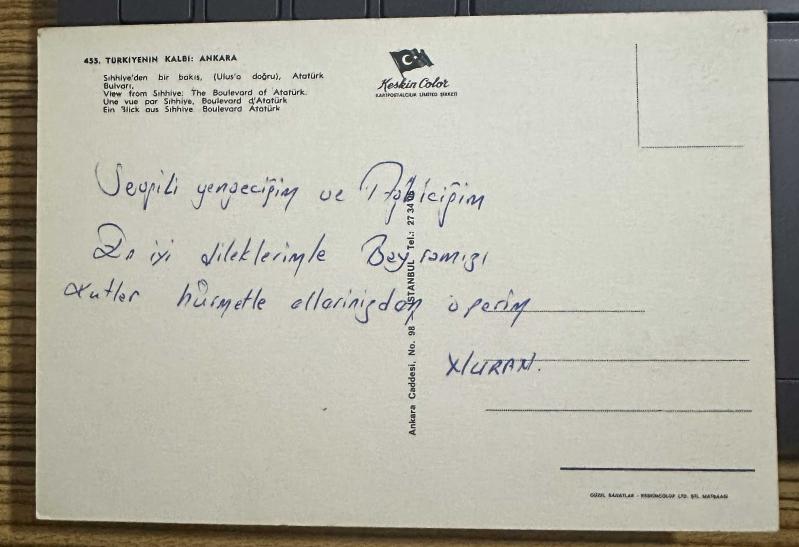 455. TÜRKİYENİN KALBİ: ANKARA
Sıhhiye'den bir bakış, (Ulus'a doğru), Atatürk
Bulvarı,
View from Sıhhiye: The Boulevard of Atatürk.
Une vue par Sıhhiye, Boulevard d'Atatürk
Ein Blick aus Sıhhiye Boulevard Atatürk
Keskin Color
KARTPOSTALCILIK LİMİTED ŞİRKETİ
Sevgili yengeciğim ve Ağbiciğim
En iyi dileklerimle Bayramızı
Kutlar hürmetle ellerinizden öperim
NURAN.
Ankara Caddesi, No. 98 - İSTANBUL Tel.: 27 34
GÜZEL SANATLAR - KESKİNCOLOR LTD. ŞTİ. MATBAASI